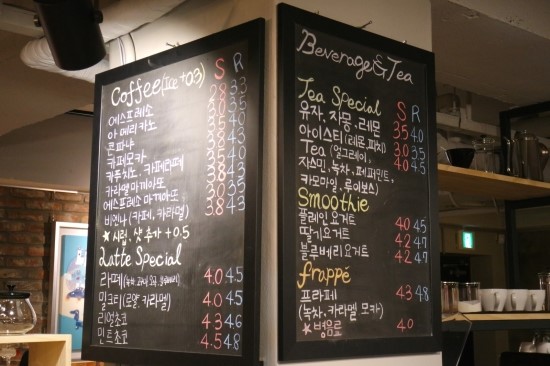 Coffee (Ice +03) S R
에스프레소 3.3
아메리카노
콘파나
카페모카
카푸치노, 카페라떼
카라멜 마끼아또
에스프레소 마끼아또 3.0
비엔나 (카페, 카라멜) 3.8 4.3
★ 시럽, 샷 추가 +0.5
Latte Special
라떼 4.0 4.5
밀크티 (로얄, 카라멜) 4.0 4.5
리얼초코 4.3 4.6
민트초코 4.5 4.8
Beverage & Tea
Tea Special S R
유자, 자몽, 레몬 3.5 4.0
아이스티 (레몬, 피치) 3.0 3.5
Tea (얼그레이, 4.0 4.5
쟈스민, 녹차, 페퍼민트,
카모마일, 루이보스)
Smoothie
플레인요거트 4.0 4.5
딸기요거트 4.2 4.7
블루베리요거트 4.2 4.7
frappé
프라페 4.3 4.8
(녹차, 카라멜 모카)
★ 병음료 4.0